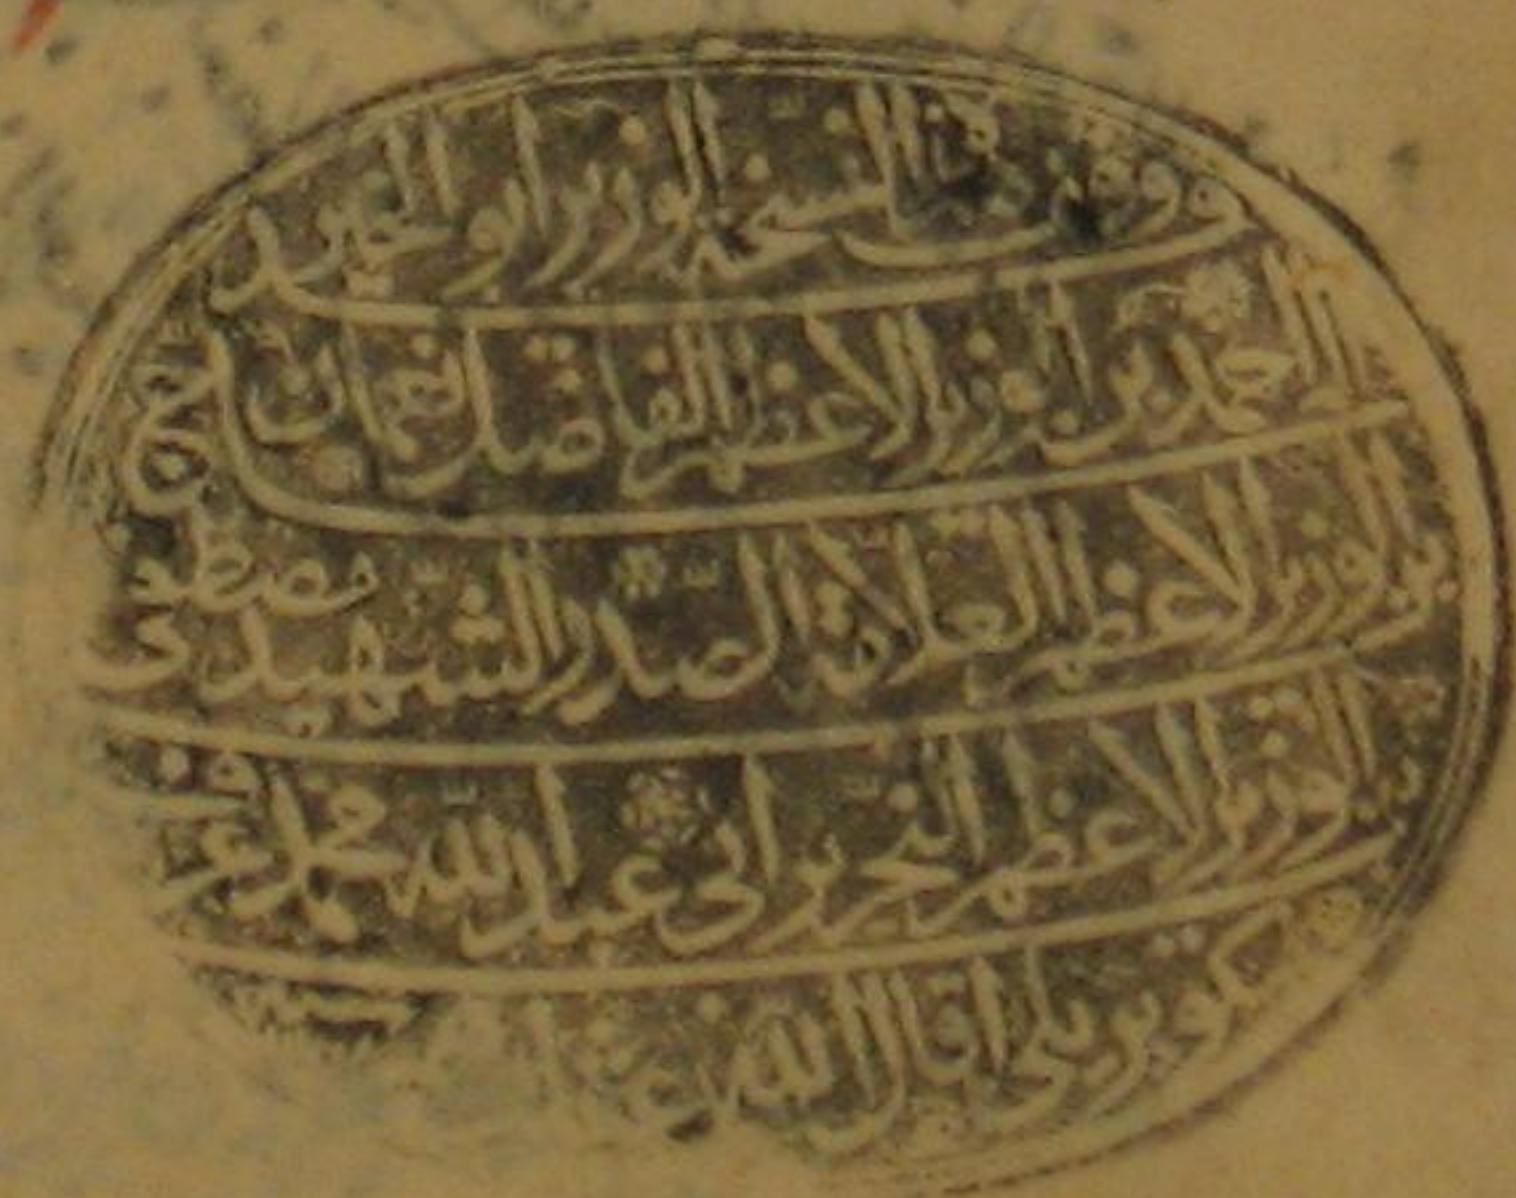 وقف هذه النسخة الوزير ابو الخير
الحاج احمد بن الوزير الاعظم الفاضل نعمان
بن الوزير الاعظم العلامة الصدر الشهيد مصطفى
بن الوزير الاعظم النحرير ابى عبد الله محمد عرف
بكوبريلى اقال الله